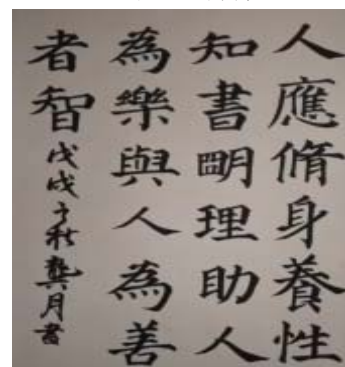 人應脩身養性
知書朙理助人
為樂與人為善
者智戊戌于秋龔月書